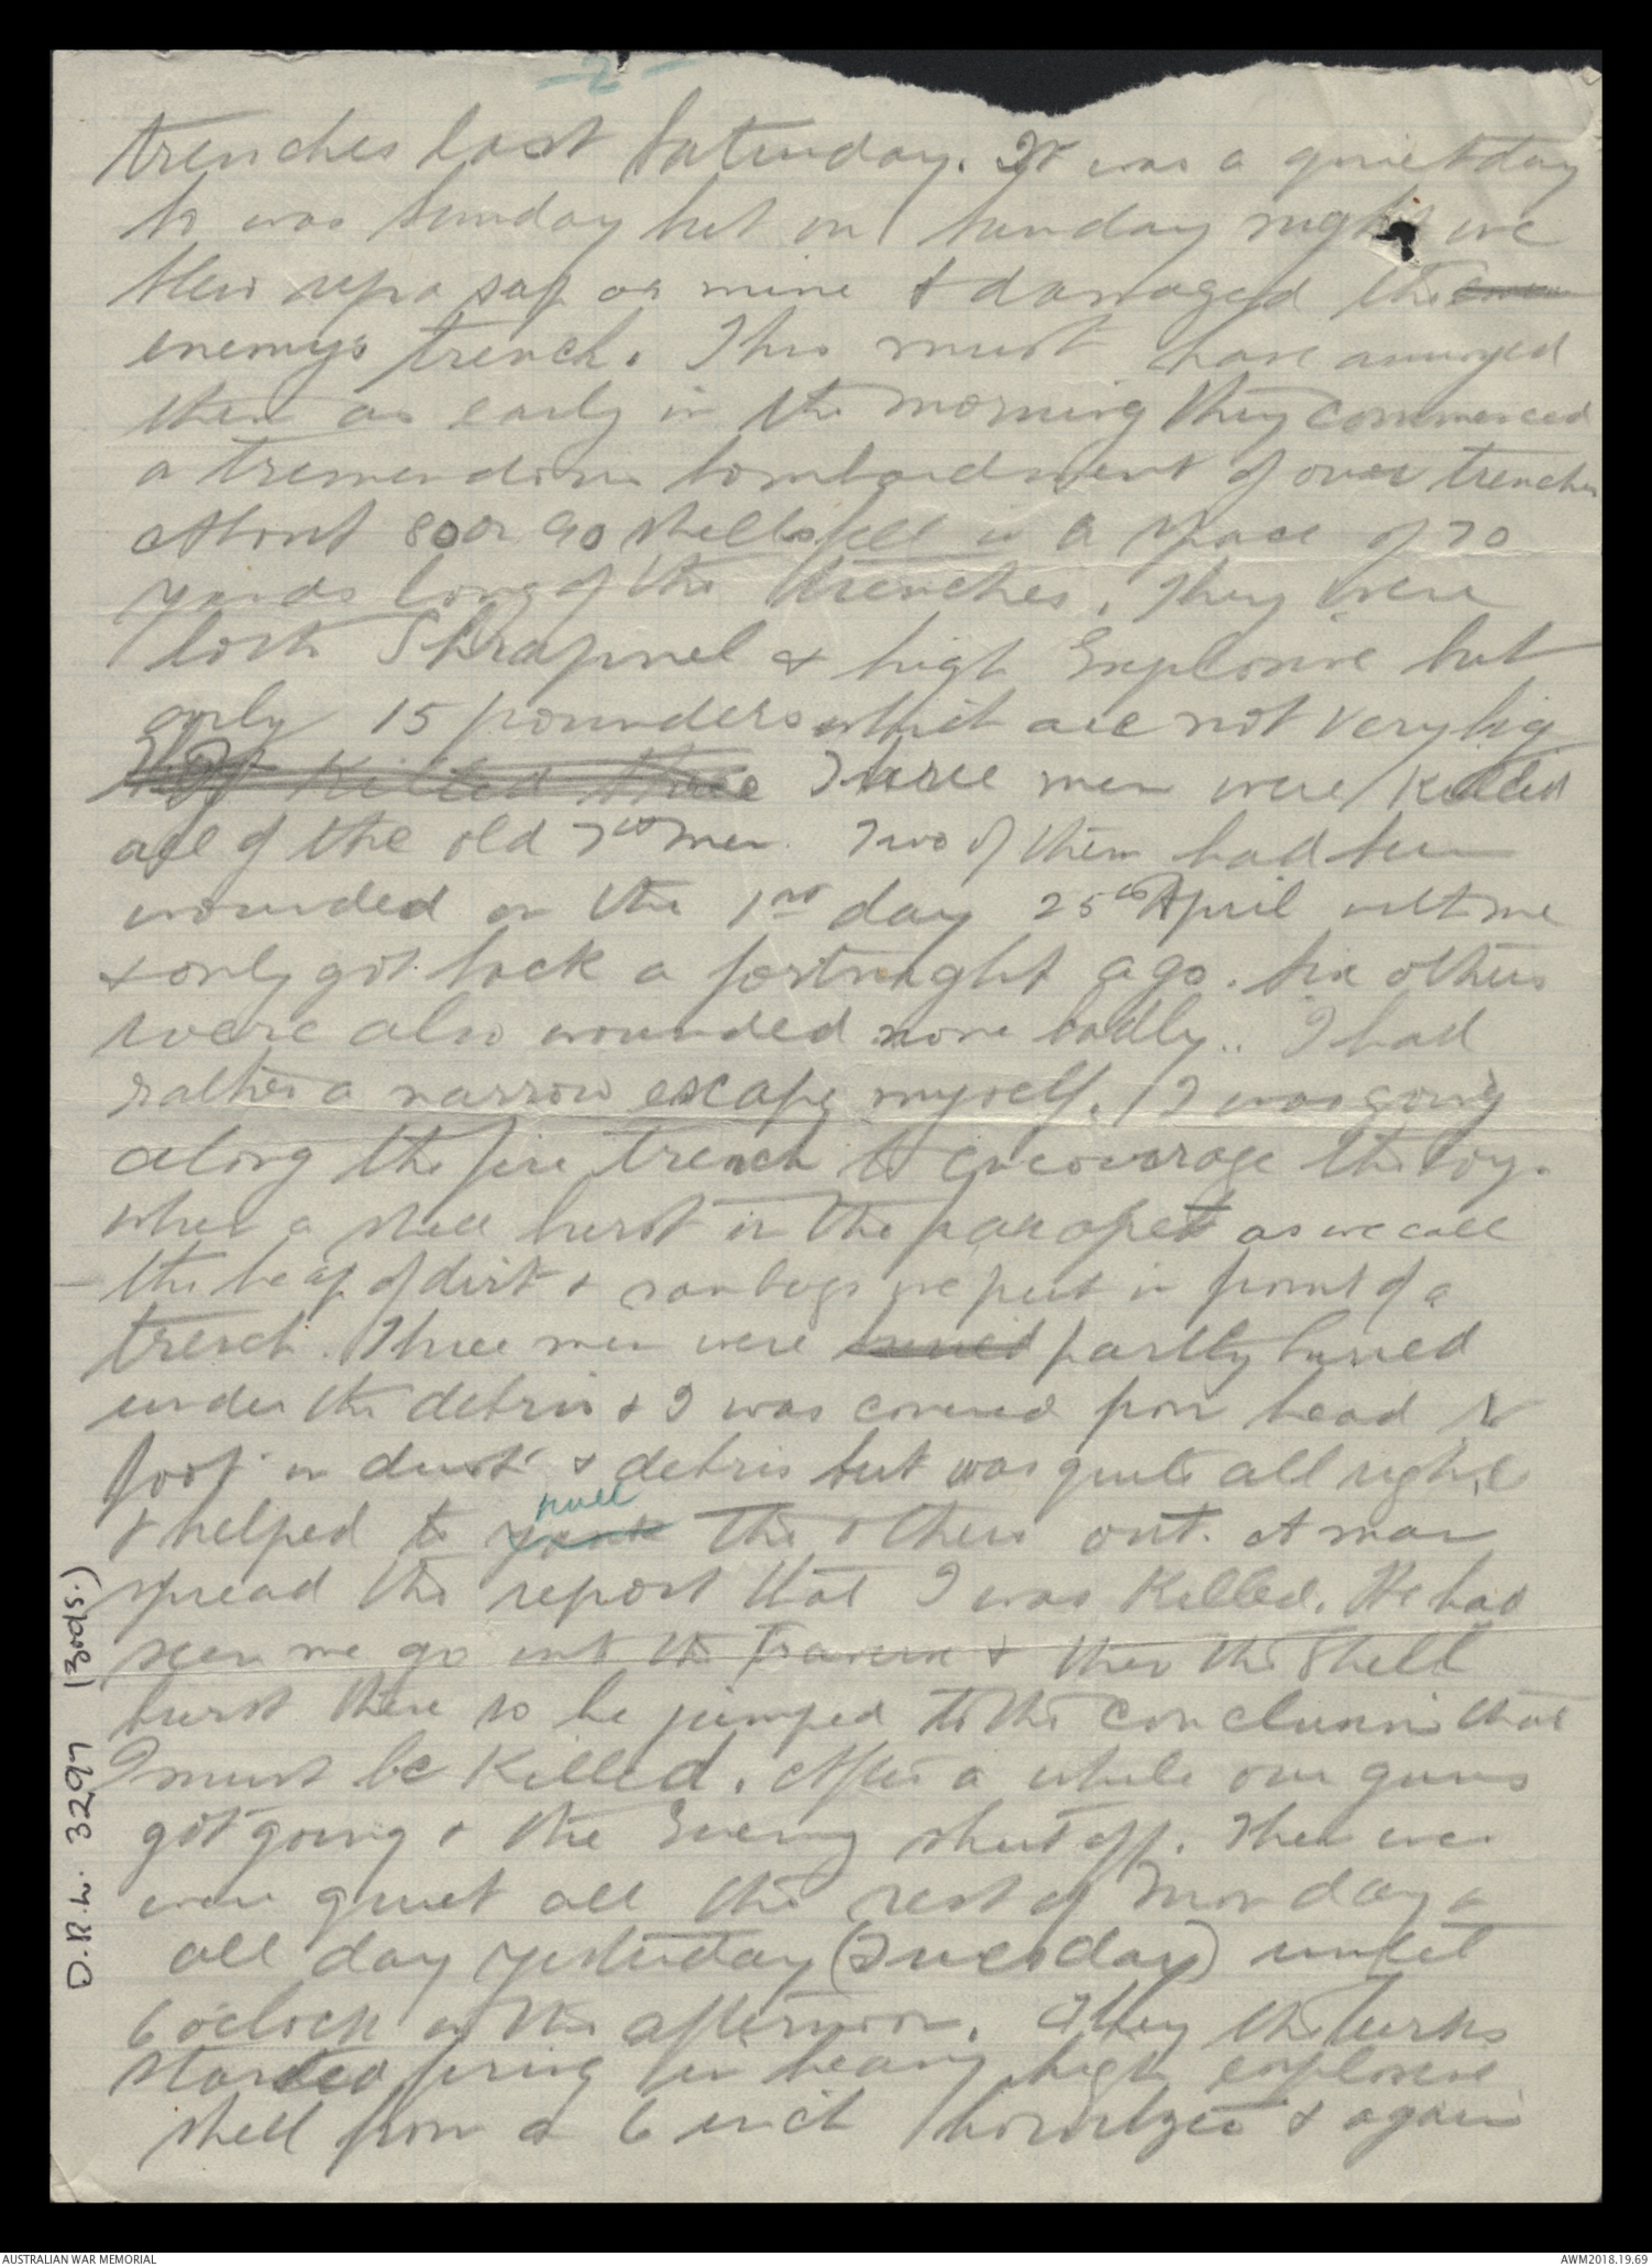 -2-
trenches last Saturday. It was a quiet day
so was Sunday but on Sunday night we
blew up a sap or mine & damaged the
enemys trench. This must have annoyed
them as early in the morning they commenced
a tremendous bombardment of our trenches
About 80 or 90 shells fell in a space of 70
yards long of the trenches. They were
both Shrapnel & high Explosive but
only 15 pounders which are not very big
killed three Three men were killed
all of the old 7th men. Two of them had been
wounded on the 1st day 25th April with me
& only got back a fortnight ago. Six others
were also wounded none badly.. I had
rather a narrow escape myself. I was going
along the fire trench to encourage the boys
when a shell burst in the parapet as we call
the heap of dirt & sanbags we put in front of a
trench. Three men were buried partly buried
under the debris & I was covered from head to
foot in dust & debris but was quite all right
pull
& helped to yank the others out. A man
spread the report that I was killed. He had
seen me go into the Traverse & then the Shell
burst there so he jumped to the conclusion that
I must be killed. After a while our guns
got going & the Enemy shut off. Then we
were quiet all the rest of Monday &
all day yesterday (Tuesday) until
6 oclock in the afternoon. the turks
started firing heavy high explosive
shell from a 6 inch howitzer & again
D.R.L. 3297 (3rd s.)
AUSTRALIAN WAR MEMORIAL
AWM2018.19.69